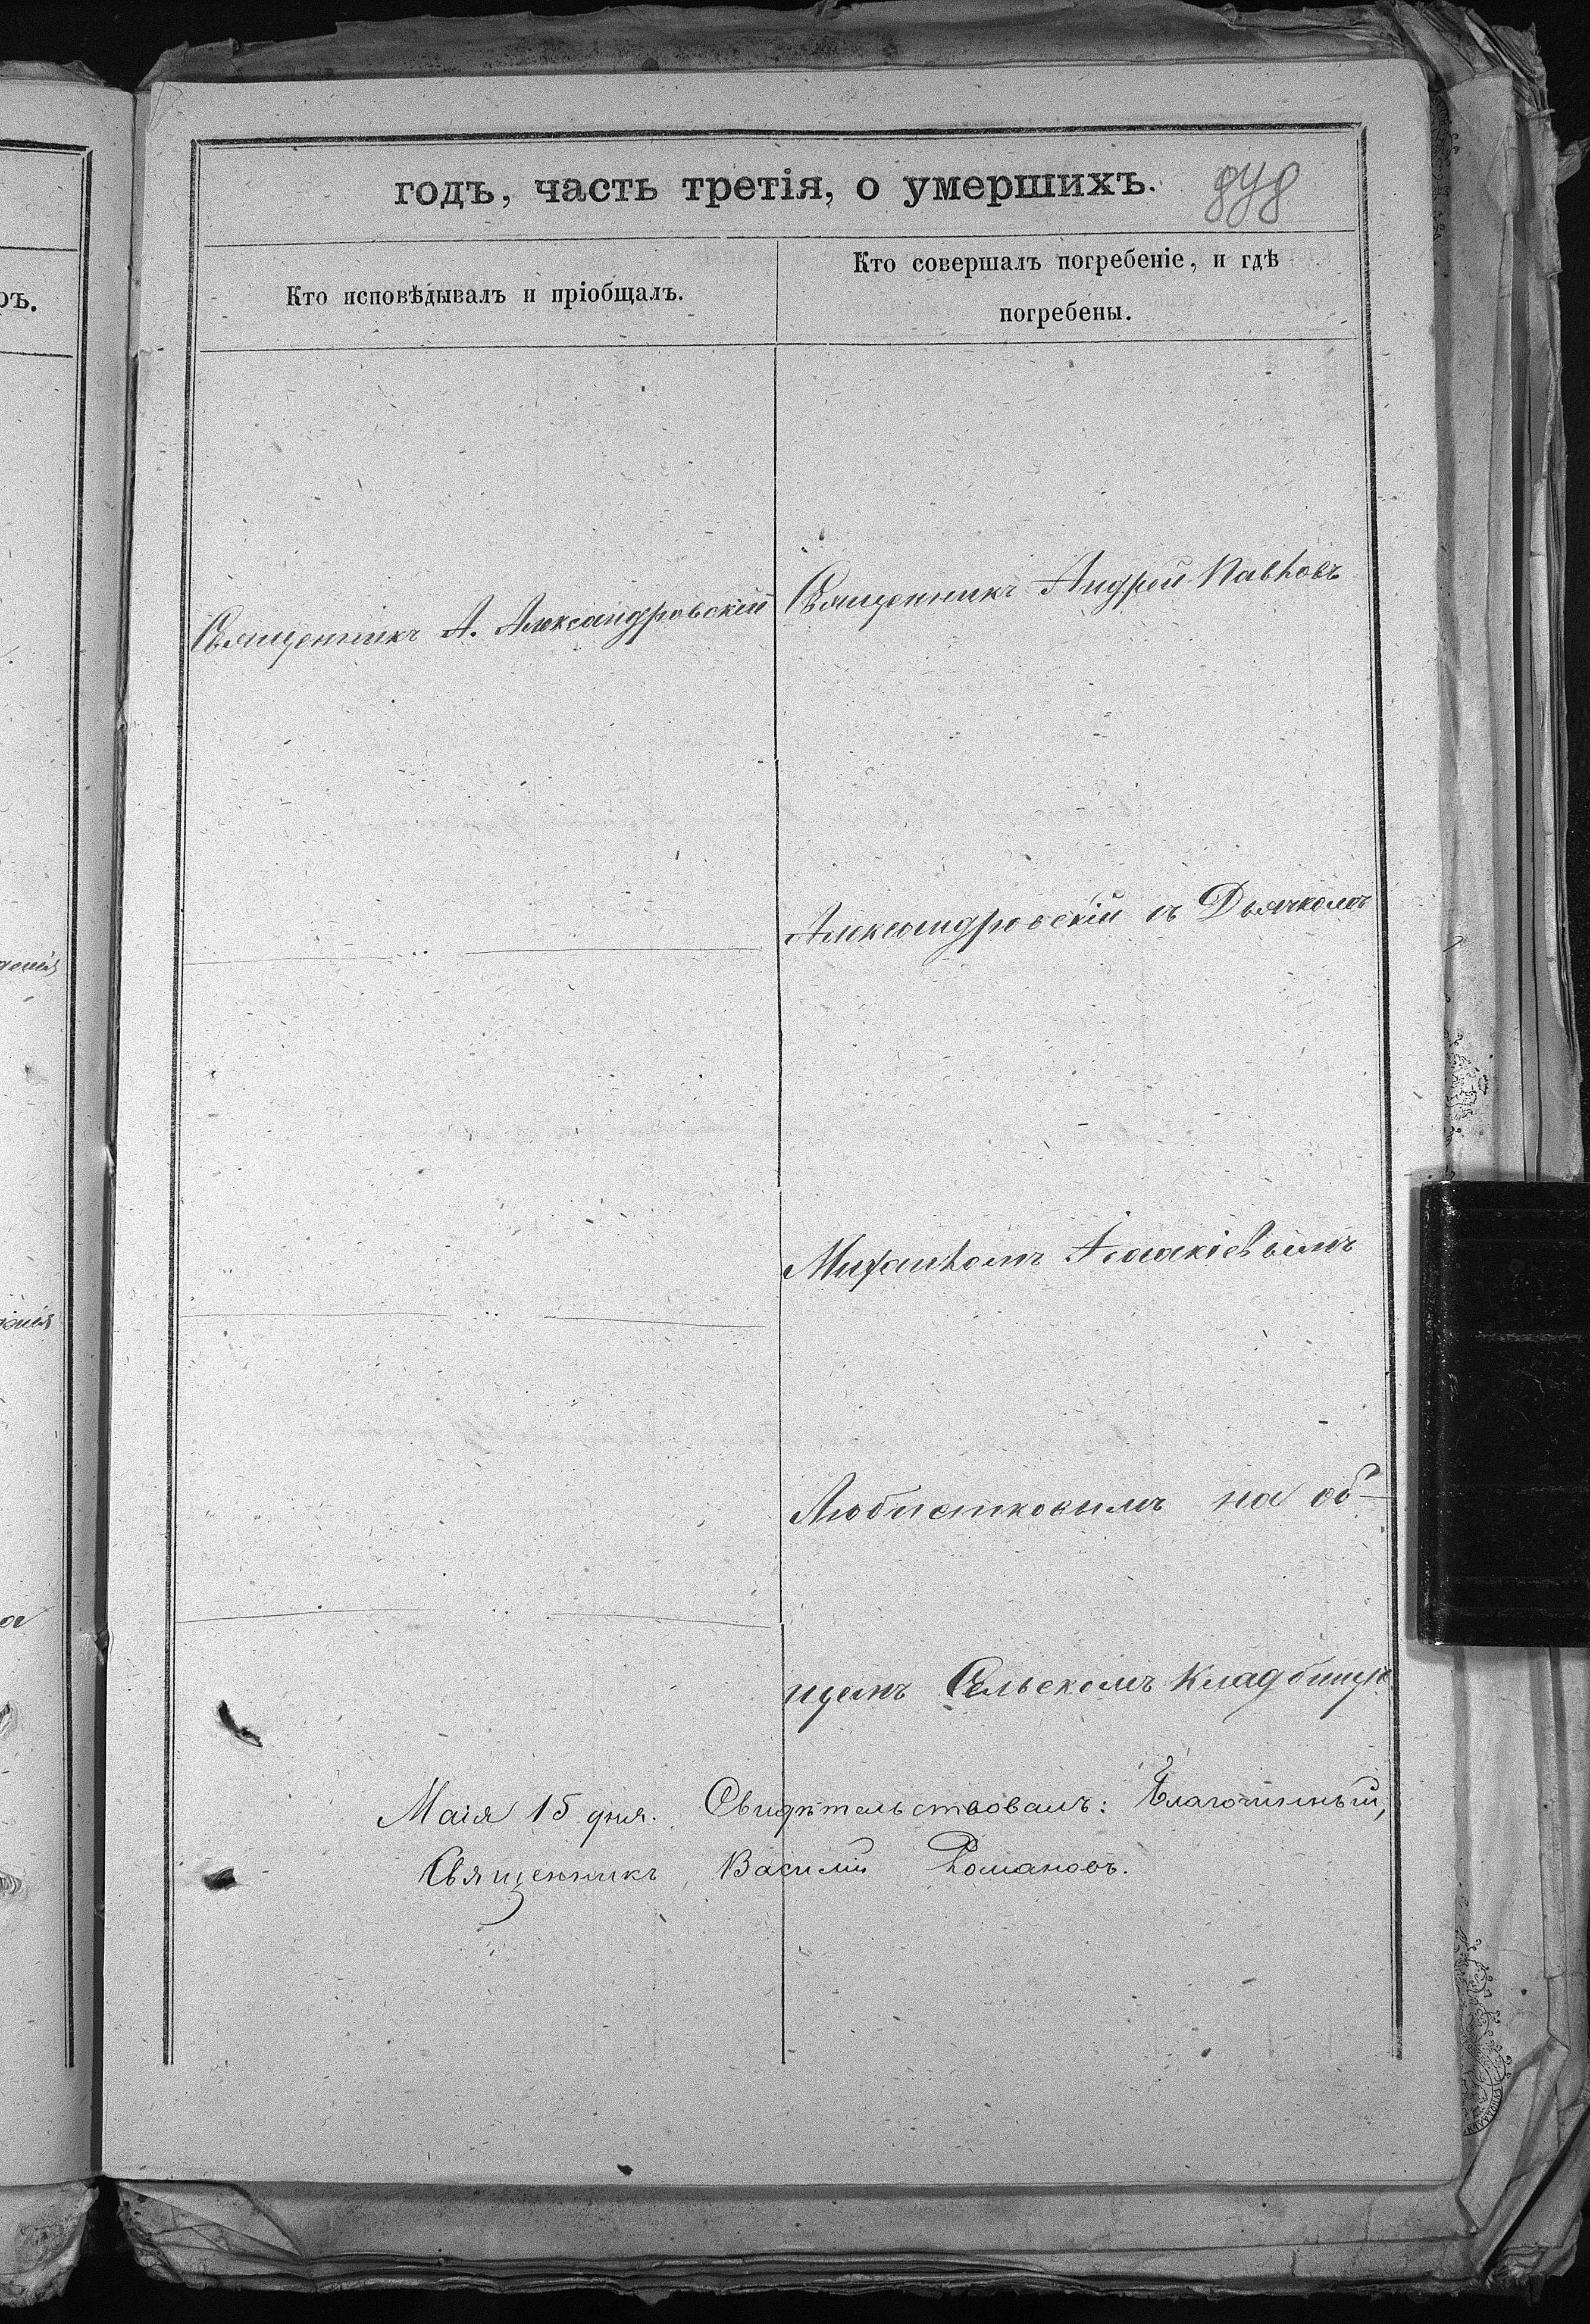 годъ, часть третія, о умершихъ.
Кто исповѣдывалъ и пріобщалъ.
Кто совершалъ погребеніе, и гдѣ
погребены.
Священникъ А. Александровскій
Священникъ Андрей Павловъ
Александровскій съ Дьячкомъ
Михаиломъ Исакіевымъ
Любистковымъ на об-
щемъ Сельскомъ Кладбищѣ
Маія 15 дня. Свидѣтельствовалъ: Благочинный,
Священникъ Василій Романовъ.